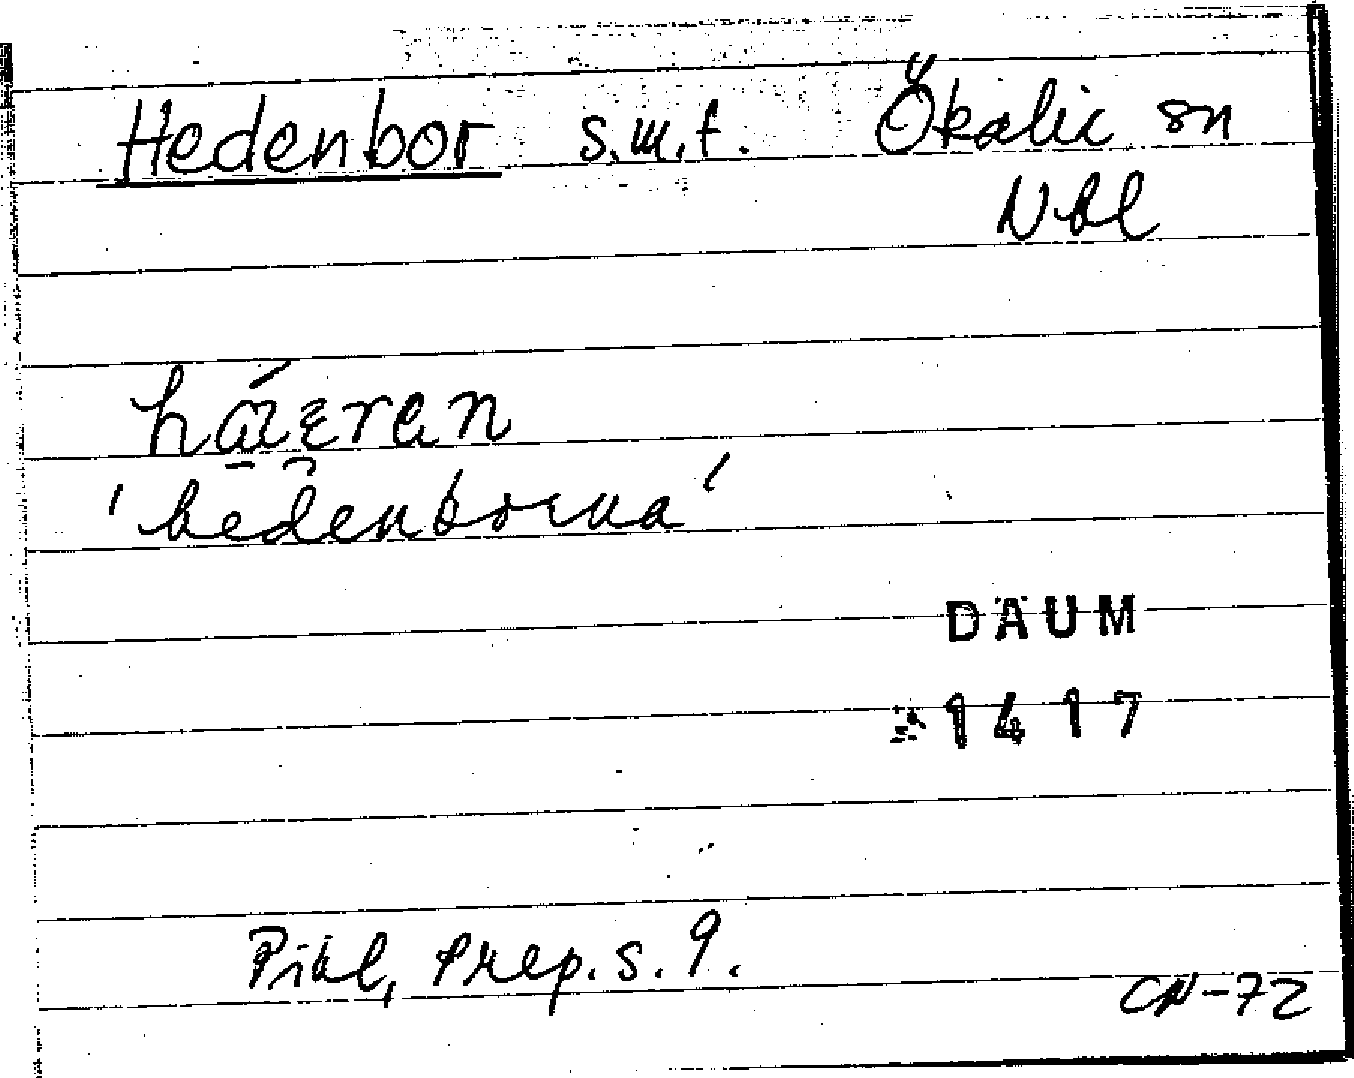 Hedenbor s.m.f. Ökalix sn
Nbl
'hedenborna'
DAUM
1417
Pihl, Prep. s. 9.
CN-72